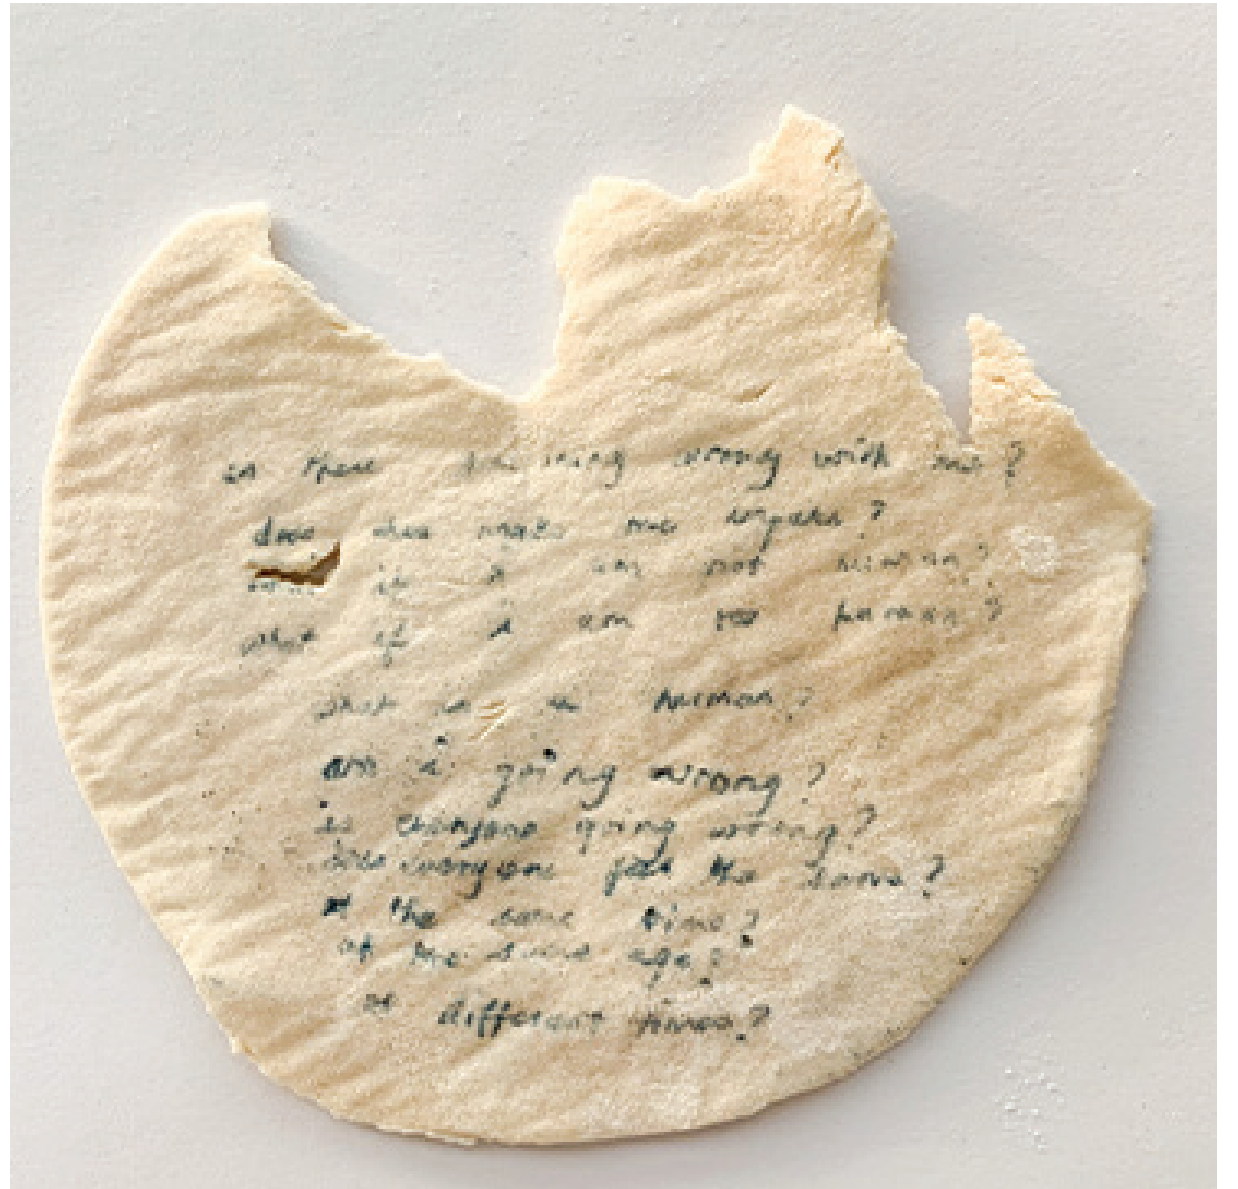 is there something wrong with me?
does this make me impure?
what if i am not human?
what if i am too human?
what is a human?
am i going wrong?
is everyone going wrong?
does everyone feel the same?
at the same time?
at the same age?
at different times?